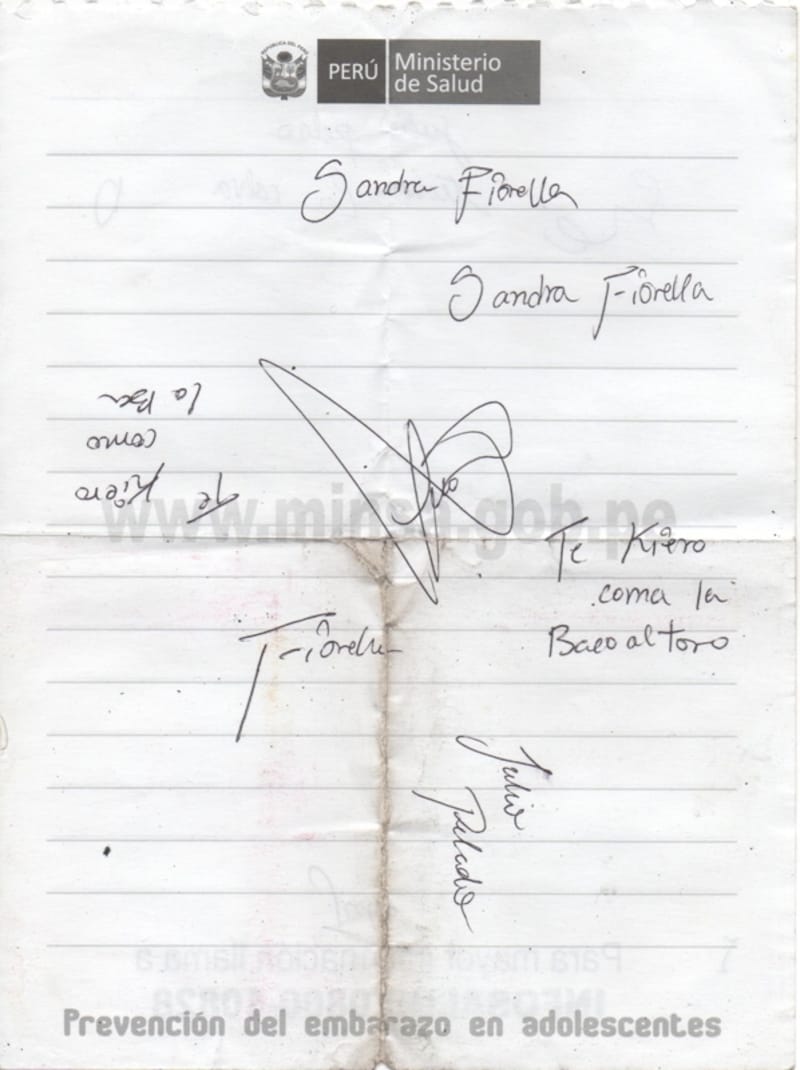 REPÚBLICA DEL PERÚ
PERÚ
Ministerio
de Salud
Sandra Fiorella
Sandra Fiorella
Te Kiero
como
la
www.minsa.gob.pe
Te Kiero
coma la
Baco al toro
Fiorella
Julio
Para mayor información llama a
INFOSALUD 0800 10828
Prevención del embarazo en adolescentes